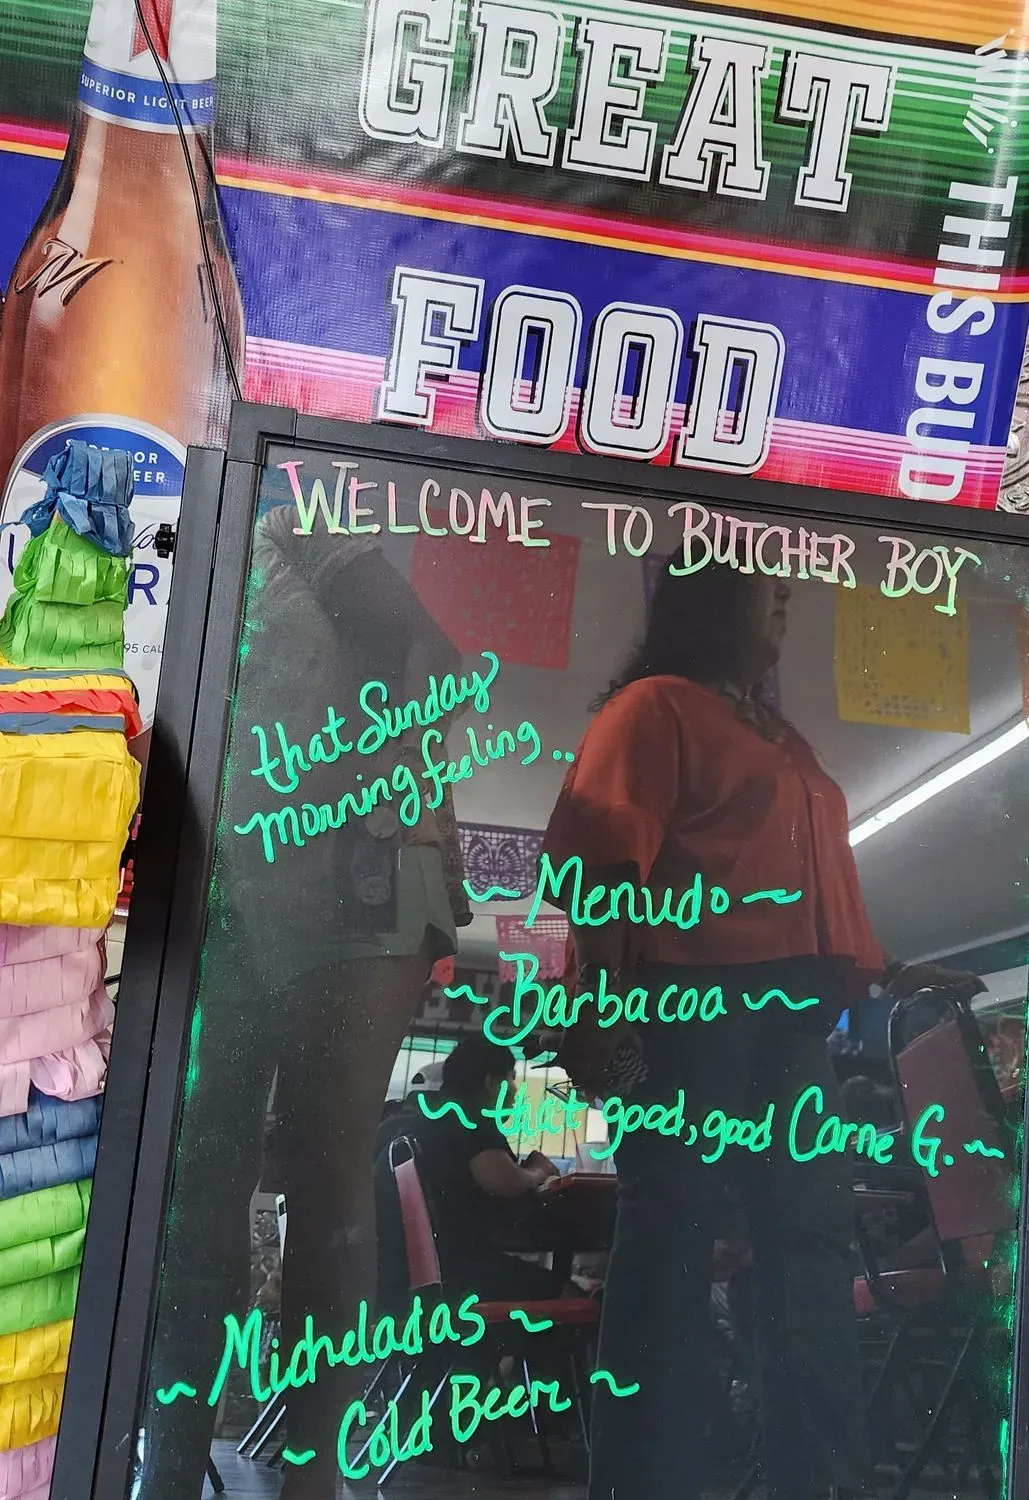 SUPERIOR LIGHT BEER
GREAT
FOOD
THIS BUD
M
95 CAL
WELCOME TO BUTCHER BOY
that Sunday
morning feeling..
~ Menudo ~
~ Barbacoa ~
~ that good, good Carne G. ~
~ Micheladas ~
~ Cold Beer ~